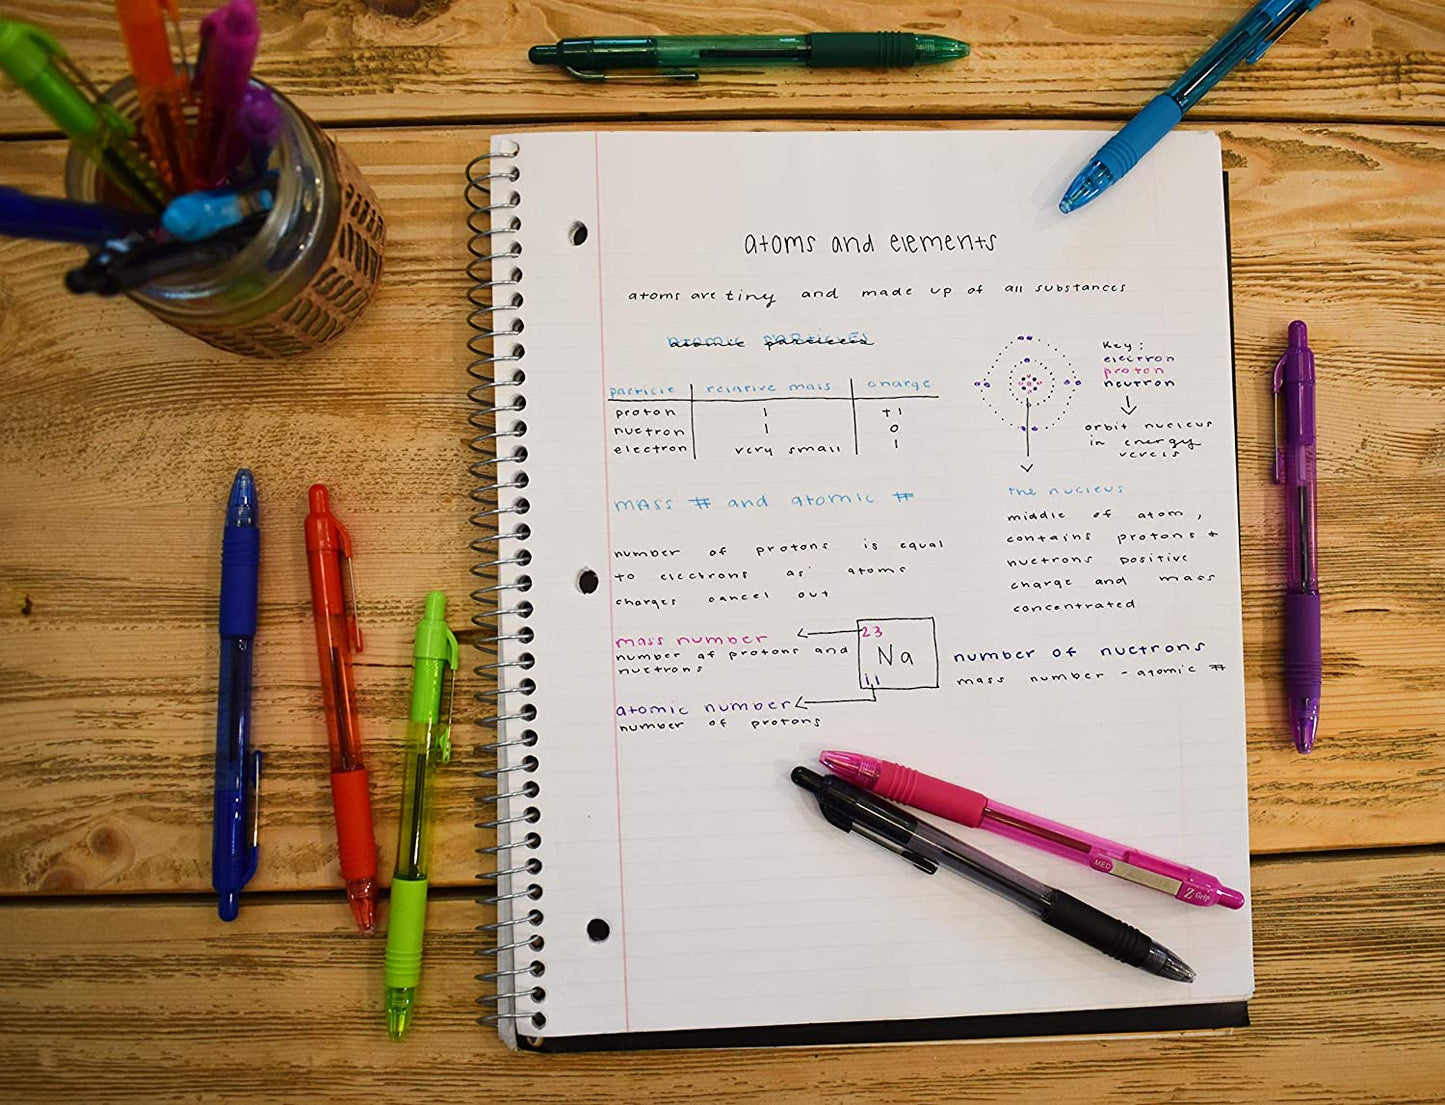 atoms and elements
atoms are tiny and made up of all substances
atomic particles
particle relative mass charge
proton 1 +1
nuetron 1 0
electron very small 1
Key:
electron
proton
neutron
orbit nucleus
in energy
mass # and atomic #
number of protons is equal
to electrons as atoms
charges cancel out
the nucleus
middle of atom,
contains protons +
nuetrons positive
charge and mass
concentrated
mass number
number of protons and
nuetrons
23
Na
11
atomic number
number of protons
number of nuetrons
mass number - atomic #
MED
Z Grip